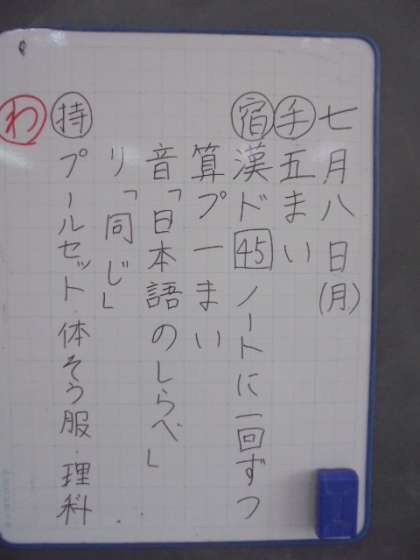 七月八日(月)
手 五まい
宿 漢ド45ノートに一回ずつ
算プ一まい
音「日本語のしらべ」
り「同じ」
持 プールセット・体そう服・理科
わ